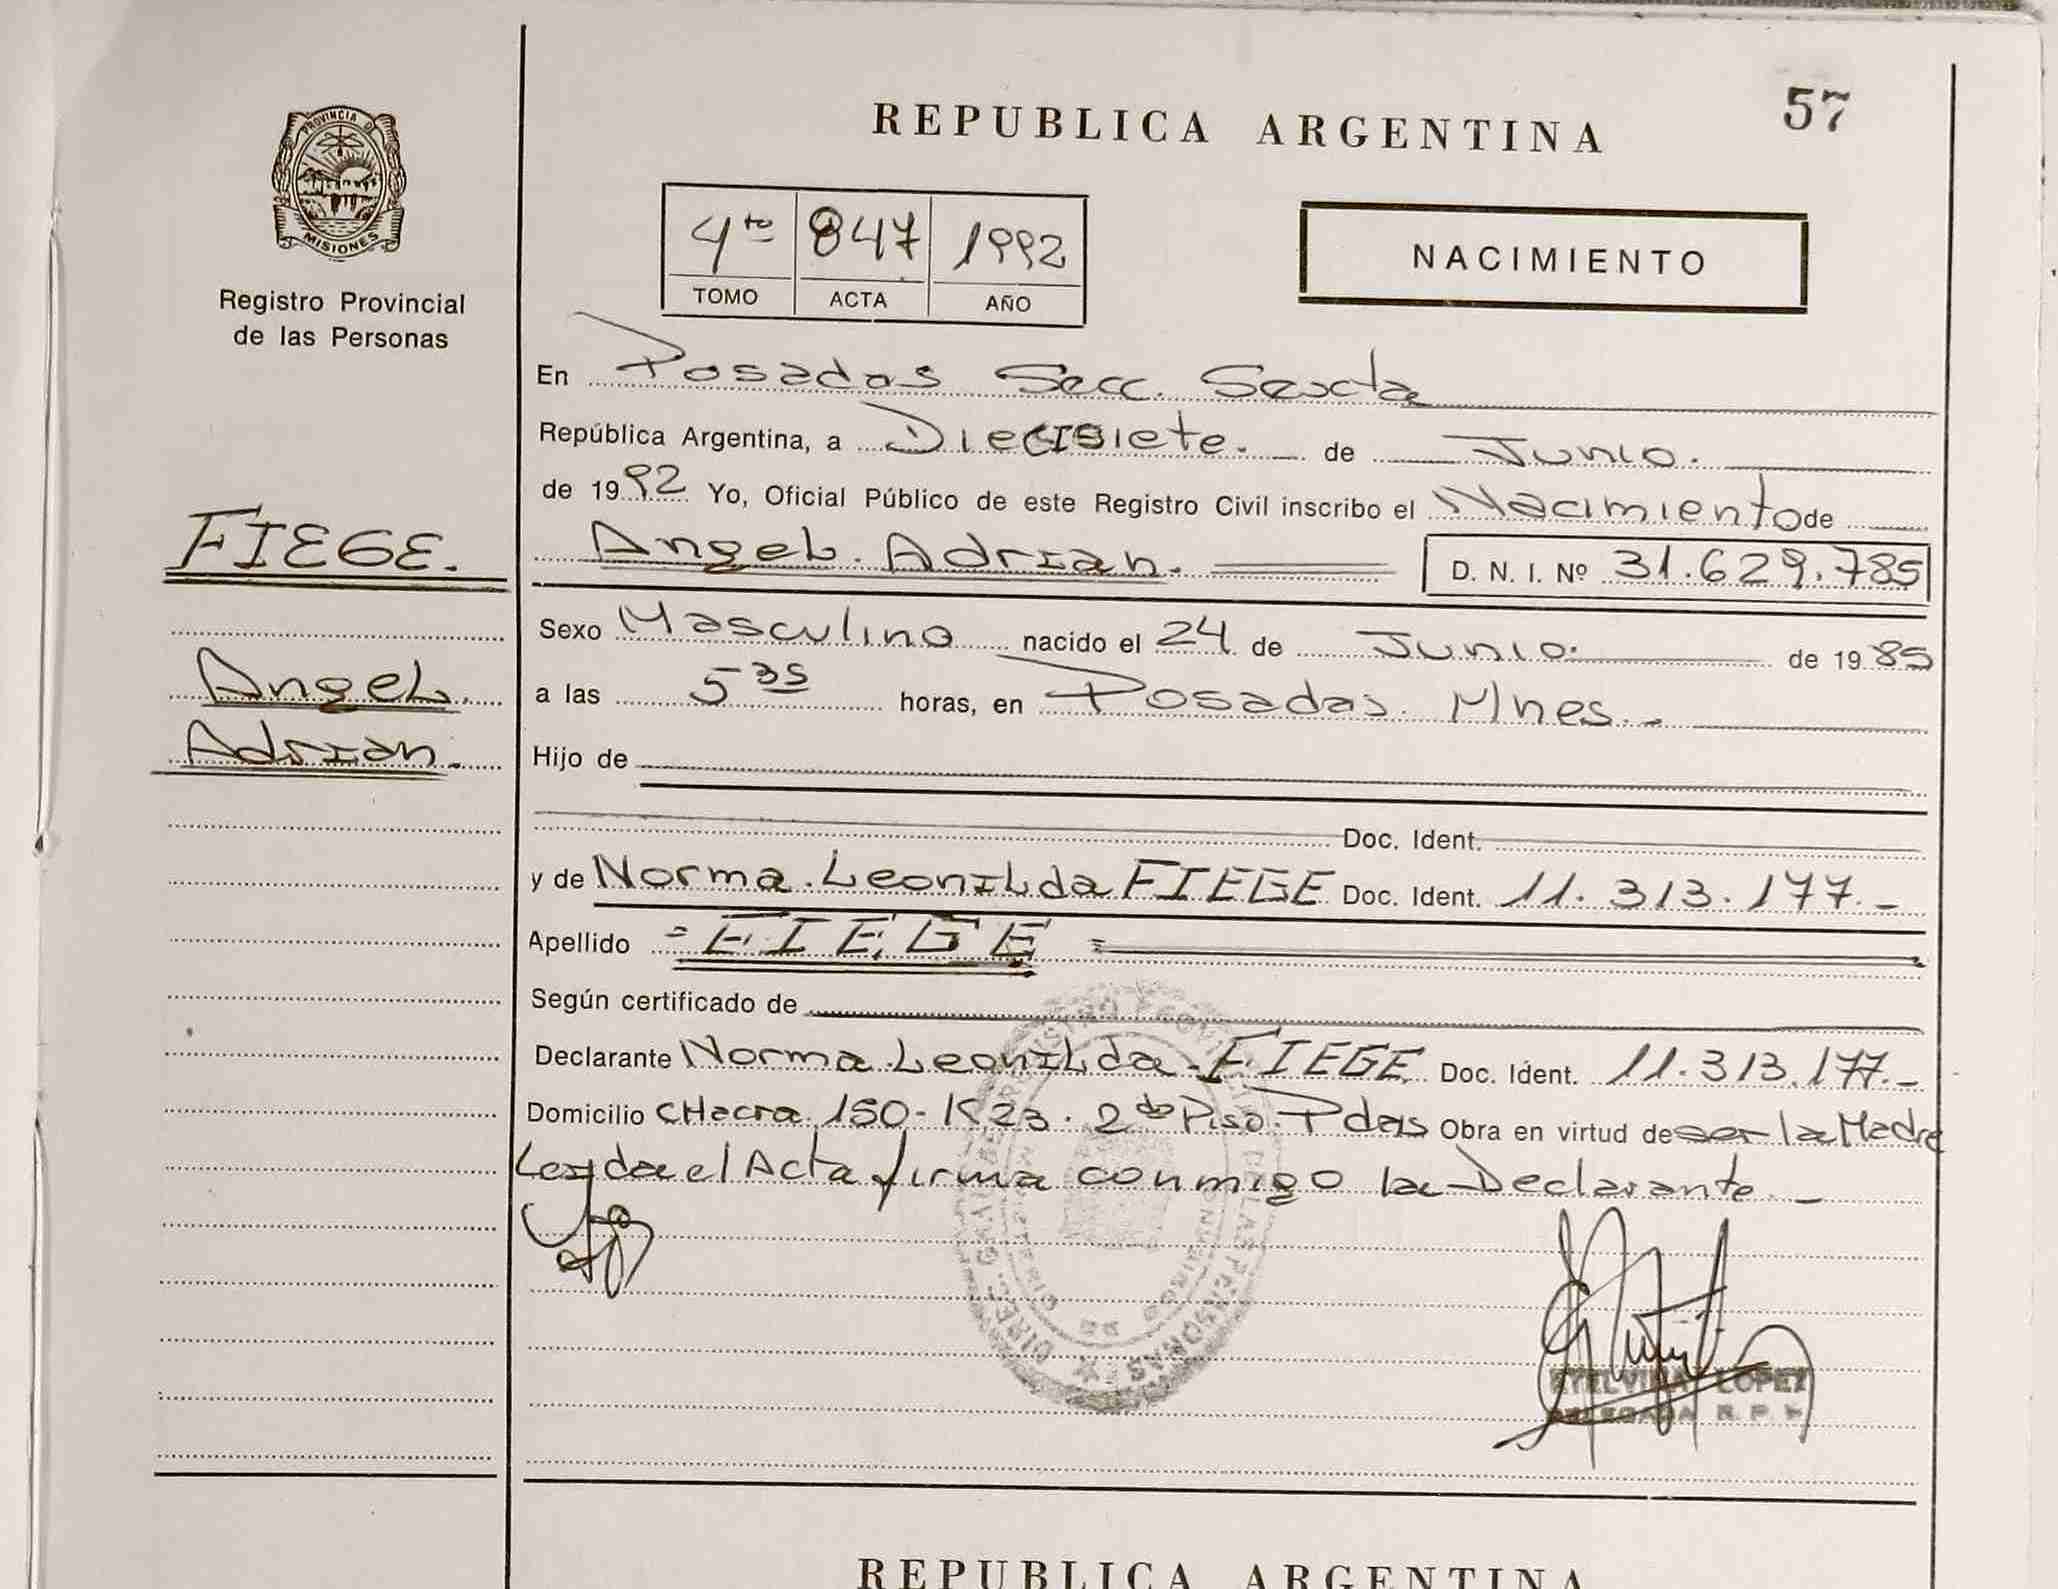 REPUBLICA ARGENTINA
57
PROVINCIA DE
MISIONES
Registro Provincial
de las Personas
4to 847 1992
TOMO ACTA AÑO
NACIMIENTO
En Posadas Secc. Sexta
República Argentina, a Diecisiete. de Junio.
de 1992 Yo, Oficial Público de este Registro Civil inscribo el Nacimiento de
FIEGE.
Angel. Adrian. D. N. I. Nº 31.629.785
Sexo Masculino nacido el 24 de Junio. de 1985
Angel.
a las 5 35 horas, en Posadas. Mnes.-
Adrian.
Hijo de
Doc. Ident.
y de Norma. Leonilda FIEGE Doc. Ident. 11.313.177.-
Apellido - FIEGE
Según certificado de
Declarante Norma. Leonilda. FIEGE Doc. Ident. 11.313.177.-
Domicilio CHacra 150- K23. 2do Piso. Pdas Obra en virtud de ser la Madre
Leyda el Acta firma conmigo la Declarante.-
DE LAS PERSONAS
LOPEZ
DELEGADA R. P.
REPUBLICA ARGENTINA